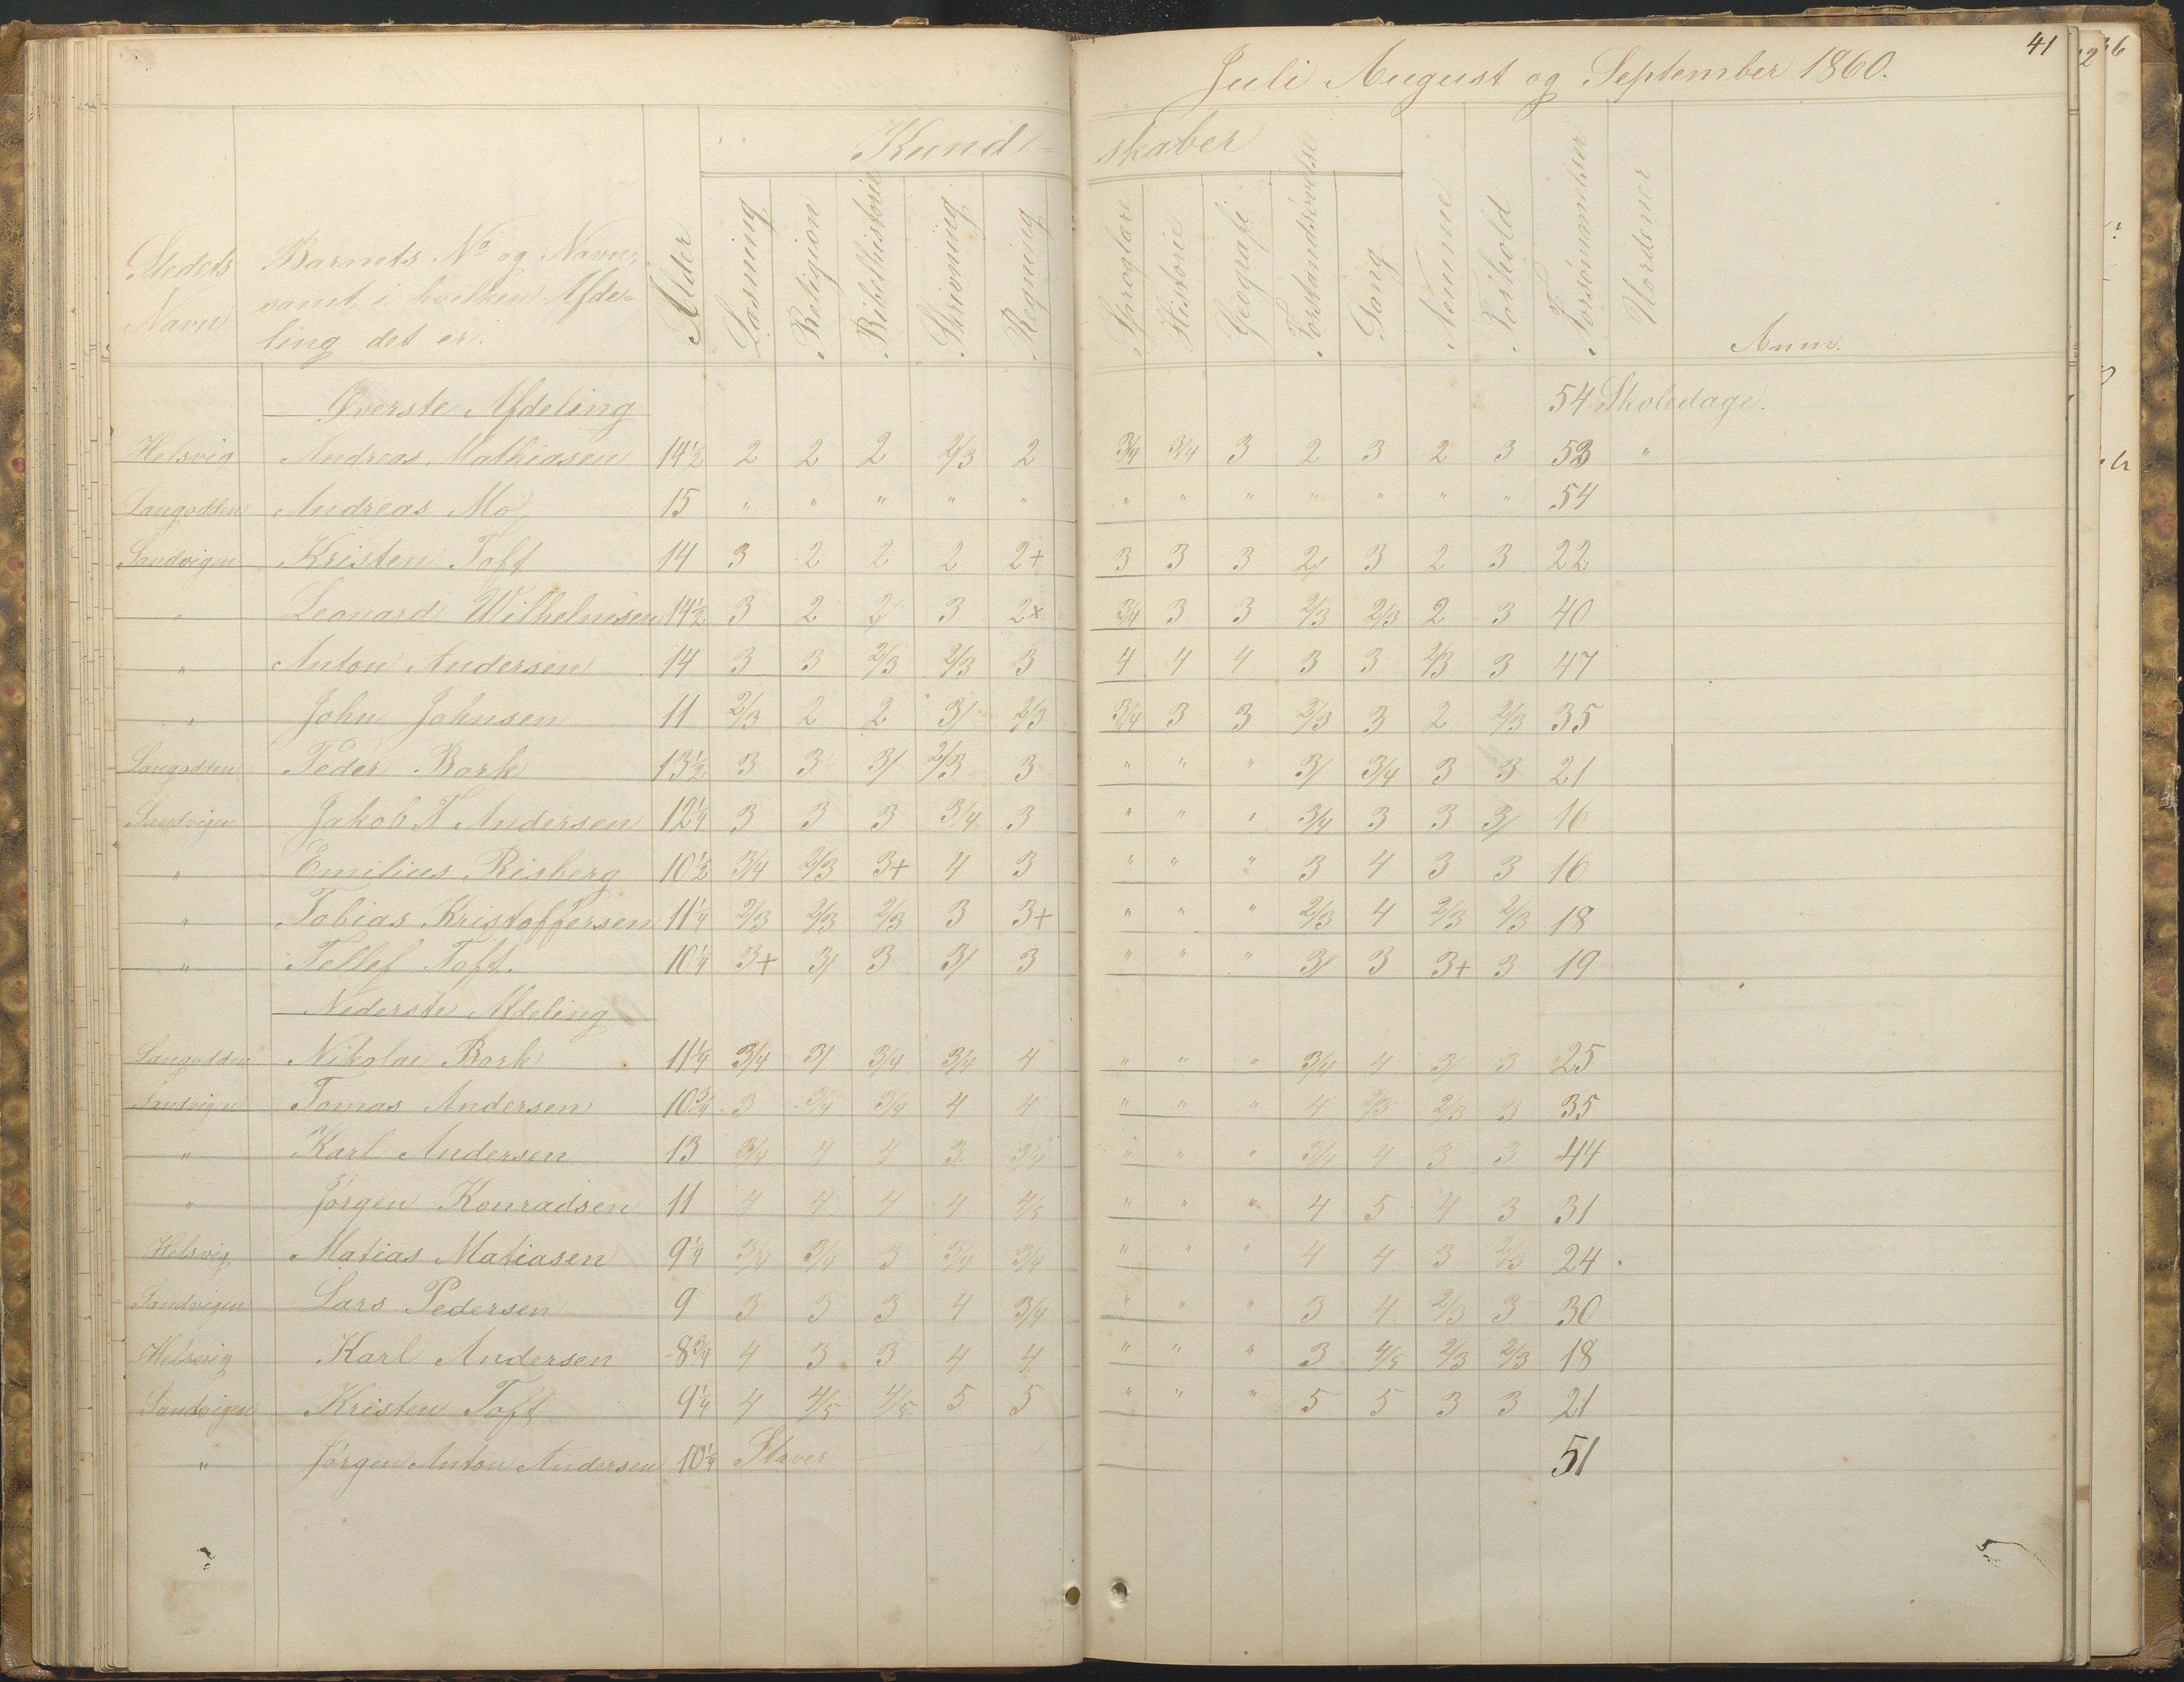 41
Juli August og September 1860.
Kund= skaber
Stedets Navn
Barnets No og Navn, samt i hvilken Afde= ling det er.
Alder
Læsning
Religion
Bibelhistorie
Skrivning
Regning
Sproglære
Historie
Geografi
Forstandsøvelse
Sang
Nemme
Forhold
Forsømmelser
Uordener
Anm.
Øverste Afdeling 54 Skoledage.
Helsvig Andreas Mathiasen 14½ 2 2 2 2/3 2 3/4 3/4 3 2 3 2 3 53 "
Langodden Andreas Mo 15 " " " " " " " " " " " " 54
Sandvigen Kristen Toft 14 3 2 2 2 2+ 3 3 3 2/ 3 2 3 22
" Leonard Wilhelmsen 14½ 3 2 2/ 3 2x 3/4 3 3 2/3 2/3 2 3 40
" Anton Andersen 14 3 3 2/3 2/3 3 4 4 4 3 3 2/3 3 47
" John Johnsen 11 2/3 2 2 3/ 2/3 3/4 3 3 2/3 3 2 2/3 35
Langodden Peder Bork 13½ 3 3 3/ 2/3 3 " " " 3/ 3/4 3 3 21
Sandvigen Jakob T Andersen 12¼ 3 3 3 3/4 3 " " " 3/4 3 3 3/ 16
" Emilius Risberg 10½ 3/4 2/3 3+ 4 3 " " " 3 4 3 3 16
" Tobias Kristoffersen 11¼ 2/3 2/3 2/3 3 3+ " " " 2/3 4 2/3 2/3 18
" Tellef Toft. 10¼ 3+ 3/ 3 3/ 3 " " " 3/ 3 3+ 3 19
Nederste Afdeling
Langodden Nikolai Bork 11¼ 3/4 3/ 3/4 3/4 4 " " " 3/4 4 3/ 3 25
Sandvigen Tomas Andersen 10¾ 3 3/4 3/4 4 4 " " " 4 2/3 2/3 3 35
" Karl Andersen 13 3/4 4 4 3 3/4 " " " 3/4 4 3 3 44
" Jörgen Konradsen 11 4 4 4 4 4/5 " " " 4 5 4 3 31
Helsvig Matias Matiasen 9¼ 3/4 3/4 3 3/4 3/4 " " " 4 4 3 2/3 24
Sandvigen Lars Pedersen 9 3 3 3 4 3/4 " " " 3 4 2/3 3 30
Helsvig Karl Andersen 8¾ 4 3 3 4 4 " " " 3 4/5 2/3 2/3 18
Sandvigen Kristen Toft 9¼ 4 4/5 4/5 5 5 " " " 5 5 3 3 21
" Jörgen Anton Andersen 10¼ Staver 51